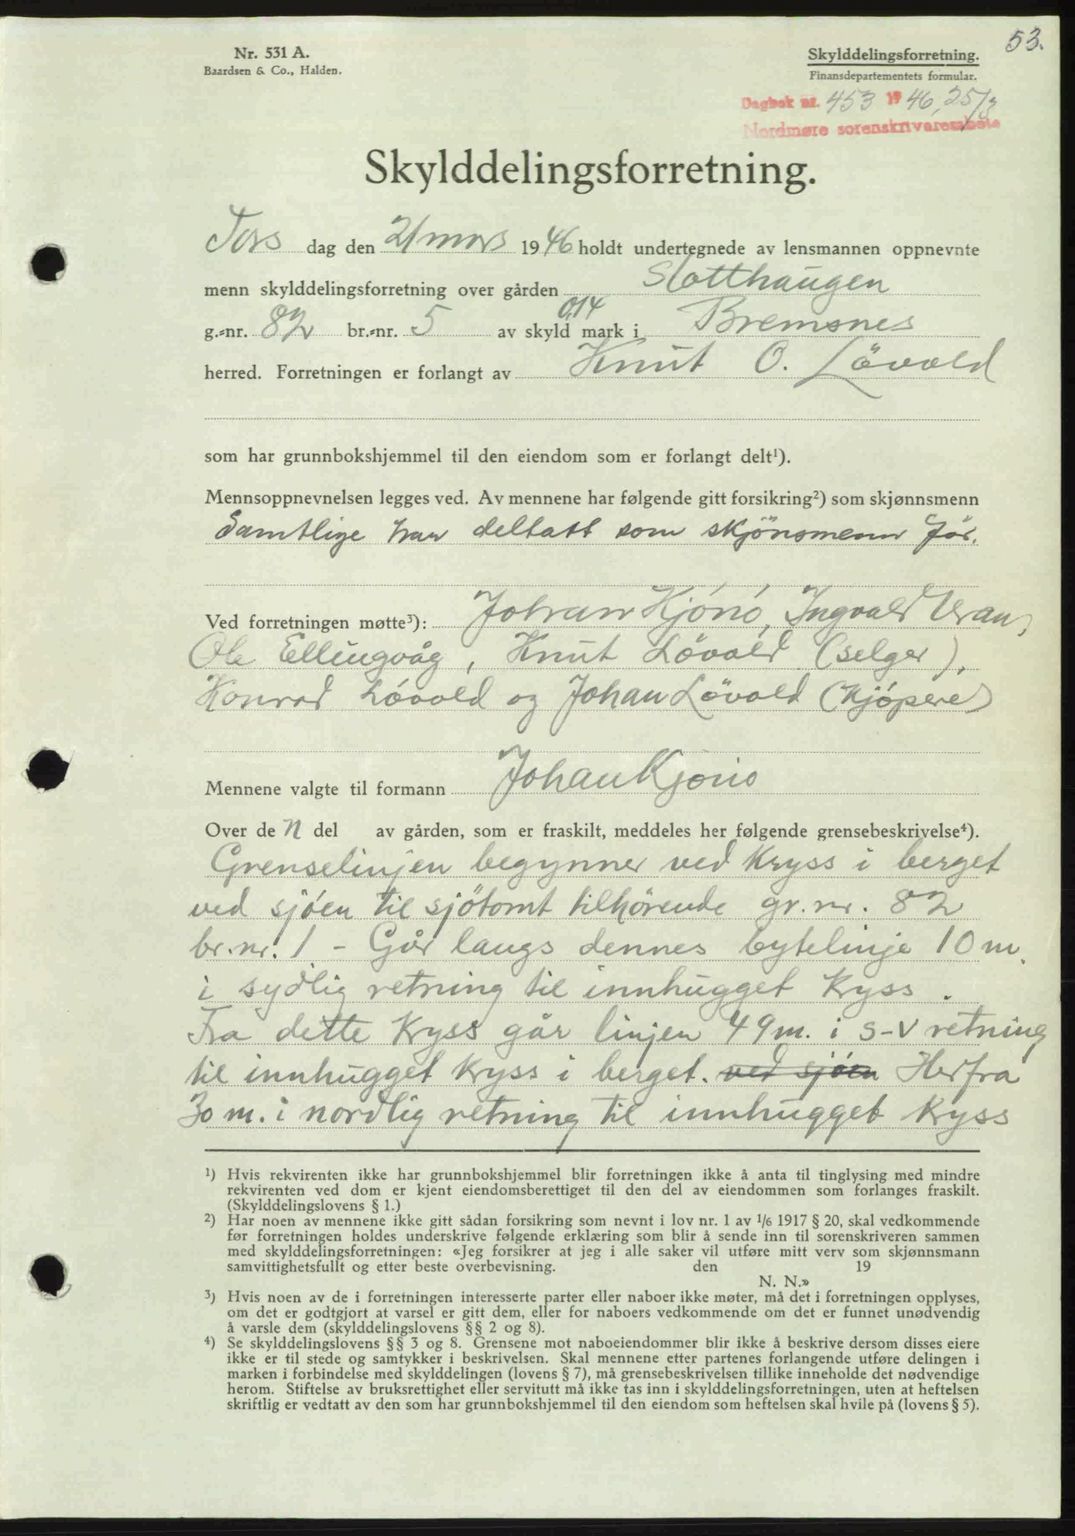 53.
Nr. 531 A.
Baardsen & Co., Halden.
Skylddelingsforretning.
Finansdepartementets formular.
Dagbok nr. 453 1946, 25/3
Nordmøre sorenskriverembete
Skylddelingsforretning.
Tors dag den 21 mars 1946 holdt undertegnede av lensmannen oppnevnte
menn skylddelingsforretning over gården Slotthaugen
g.-nr. 82 br.-nr. 5 av skyld 0,14 mark i Bremsnes
herred. Forretningen er forlangt av Knut O. Lövold
som har grunnbokshjemmel til den eiendom som er forlangt delt¹).
Mennsoppnevnelsen legges ved. Av mennene har følgende gitt forsikring²) som skjønnsmenn
Samtlige har deltatt som skjönsmenn för.
Ved forretningen møtte³): Johan Kjönö, Ingvald Vran,
Ole Ellingvåg, Knut Lövold (selger),
Konrad Lövold og Johan Lövold (kjöpere)
Mennene valgte til formann Johan Kjönö
Over de n del av gården, som er fraskilt, meddeles her følgende grensebeskrivelse⁴).
Grenselinjen begynner ved kryss i berget
ved sjöen til sjötomt tilhörende gr.nr. 82
br.nr. 1 - Går langs dennes bytelinje 10 m.
i sydlig retning til innhugget kryss.
Fra dette kryss går linjen 49 m. i S-V retning
til innhugget kryss i berget. ved sjöen Herfra
30 m. i nordlig retning til innhugget kryss
¹) Hvis rekvirenten ikke har grunnbokshjemmel blir forretningen ikke å anta til tinglysing med mindre
rekvirenten ved dom er kjent eiendomsberettiget til den del av eiendommen som forlanges fraskilt.
(Skylddelingslovens § 1.)
²) Har noen av mennene ikke gitt sådan forsikring som nevnt i lov nr. 1 av 1/6 1917 § 20, skal vedkommende
før forretningen holdes underskrive følgende erklæring som blir å sende inn til sorenskriveren sammen
med skylddelingsforretningen: «Jeg forsikrer at jeg i alle saker vil utføre mitt verv som skjønnsmann
samvittighetsfullt og etter beste overbevisning. den 19
N. N.»
³) Hvis noen av de i forretningen interesserte parter eller naboer ikke møter, må det i forretningen opplyses,
om det er godtgjort at varsel er gitt dem, eller for naboers vedkommende om det er funnet unødvendig
å varsle dem (skylddelingslovens §§ 2 og 8).
⁴) Se skylddelingslovens §§ 3 og 8. Grensene mot naboeiendommer blir ikke å beskrive dersom disses eiere
ikke er til stede og samtykker i beskrivelsen. Skal mennene etter partenes forlangende utføre delingen i
marken i forbindelse med skylddelingen (lovens § 7), må grensebeskrivelsen tillike inneholde det nødvendige
herom. Stiftelse av bruksrettighet eller servitutt må ikke tas inn i skylddelingsforretningen, uten at heftelsen
skriftlig er vedtatt av den som har grunnbokshjemmel til den eiendom som heftelsen skal hvile på (lovens § 5).